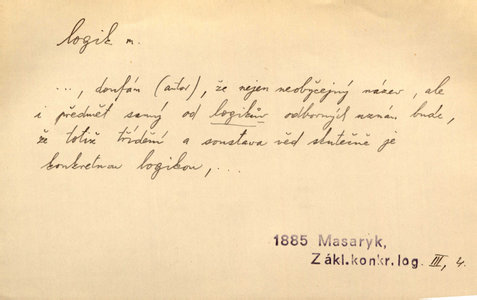 logik m.
..., doufám (autor), že nejen neobyčejný název, ale
i předmět samý od logikův odborných uznán bude,
že totiž třídění a soustava věd skutečně je
konkretnou logikou, ...
1885 Masaryk,
Zákl.konkr.log. III, 4.